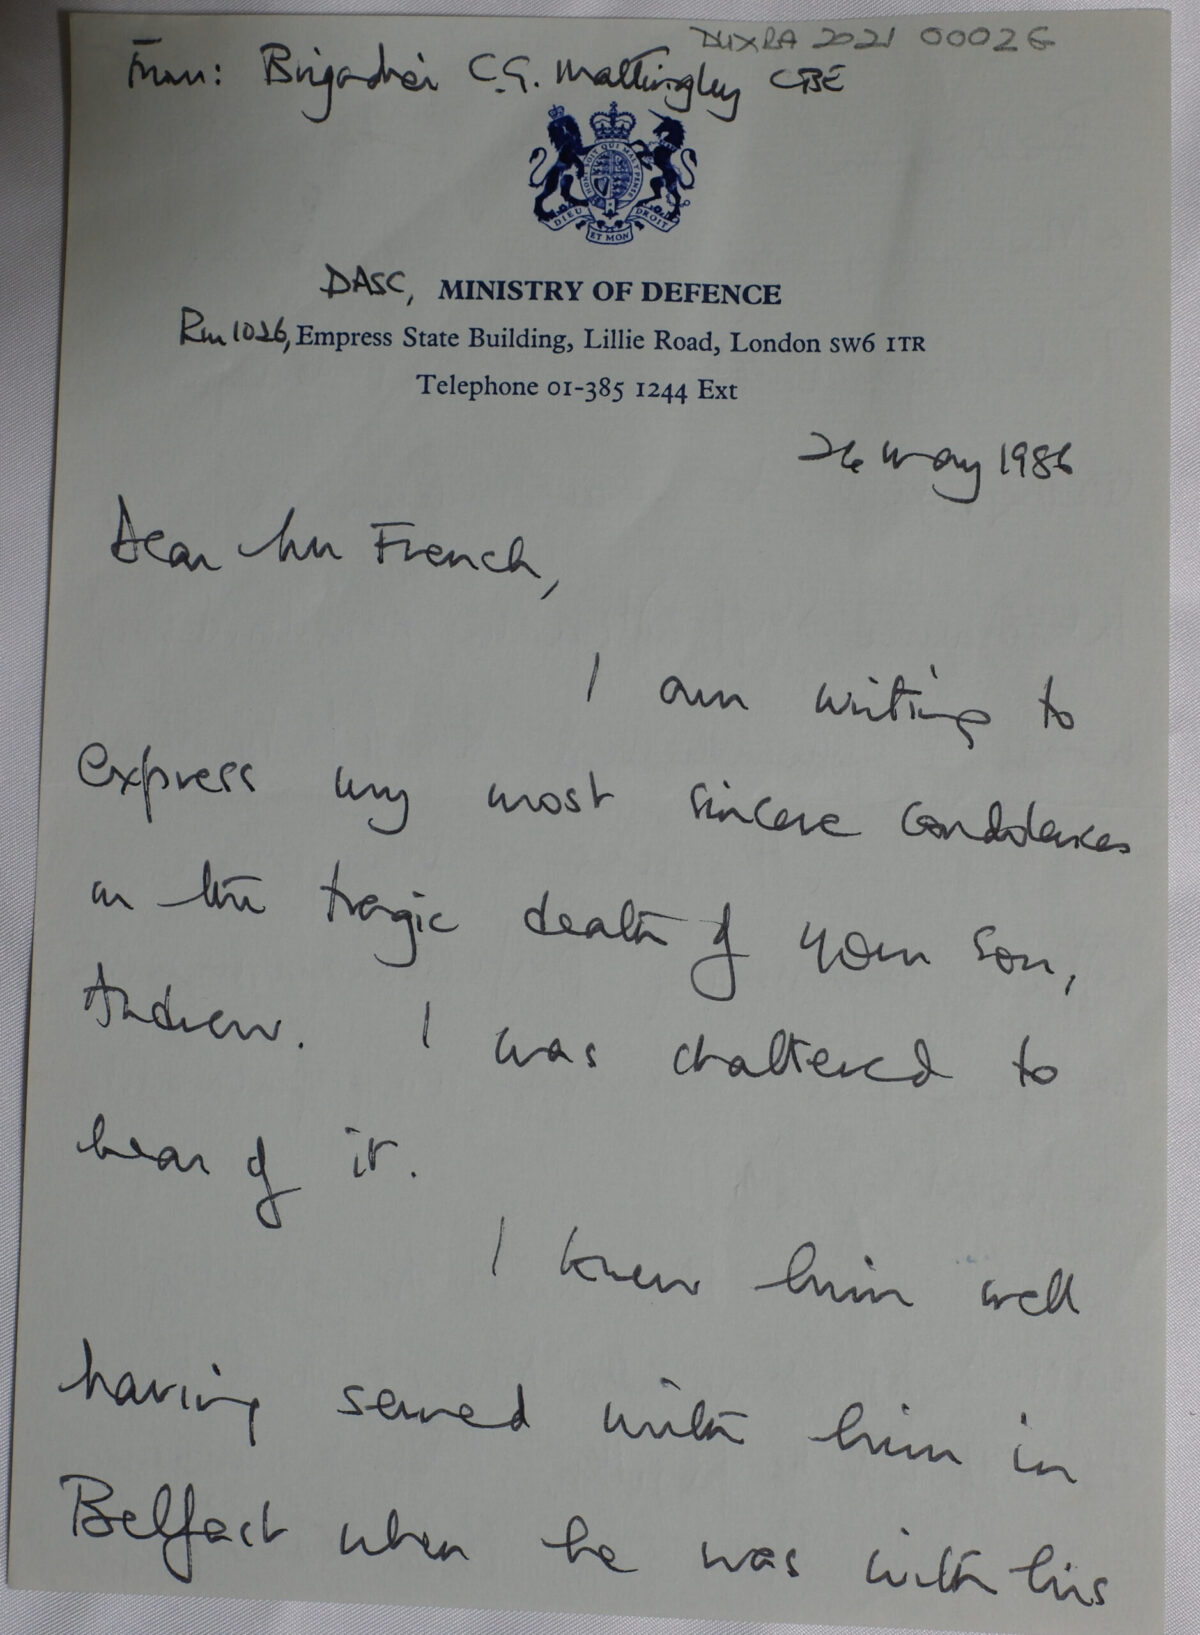 DUXRA 2021 00026
From: Brigadier C.G. Mattingley CBE
HONI SOIT QUI MAL Y PENSE
DIEU ET MON DROIT
DASC, MINISTRY OF DEFENCE
Rm 1026, Empress State Building, Lillie Road, London SW6 1TR
Telephone 01-385 1244 Ext
26 May 1986
Dear Mr French,
I am writing to
express my most sincere condolences
on the tragic death of your son,
Andrew. I was shattered to
hear of it.
I knew him well
having served with him in
Belfast when he was with his